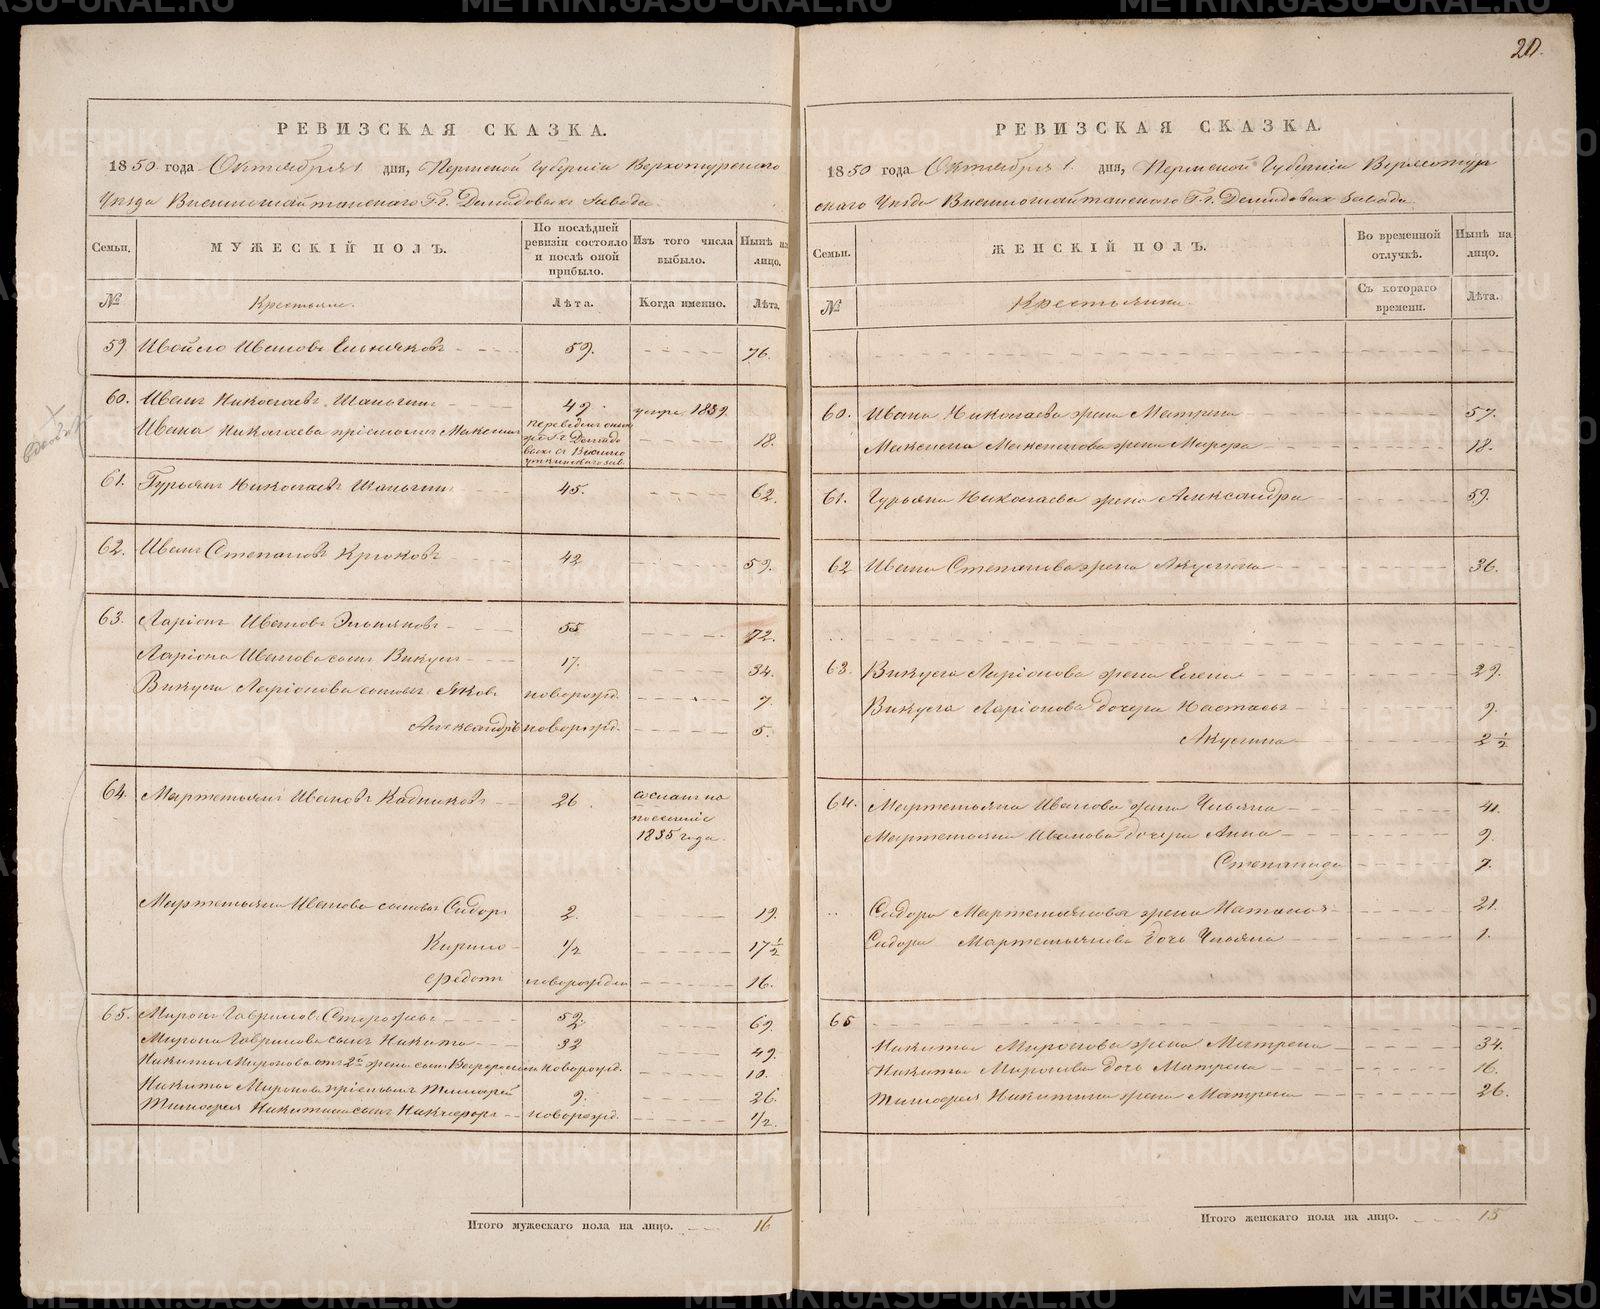 20.
РЕВИЗСКАЯ СКАЗКА.
1850 года Октября 1 дня, Пермской Губерніи Верхотурскаго
Уѣзда Висимошайтанскаго Г.г. Демидовыхъ завода.
Семьи. МУЖЕСКІЙ ПОЛЪ. По послѣдней ревизіи состояло и послѣ оной прибыло. Изъ того числа выбыло. Нынѣ на лицо.
№ Крестьяне. Лѣта. Когда именно. Лѣта.
59. Ивановъ 59. 76.
60. Иванъ Николаевъ Шаньгинъ 49. умре 1839
Ивана Николаева пріемышъ Максимъ 18.
61. Гурьянъ Николаевъ Шаньгинъ 45. 62.
62. Иванъ Степановъ Крюковъ 42 59.
63. Ларіонъ Ивановъ Эльняковъ 55 72.
Ларіона Иванова сынъ Викулъ 17. 34.
Викула Ларіонова сыновья Яковъ новорожд. 7.
Александръ новорожд. 5.
64. Мартемьянъ Ивановъ Кадниковъ 26. сосланъ на
поселеніе
1835 года.
Мартемьяна Иванова сыновья Сидоръ 2. 19.
Кирило 1/2 17 1/2
Федотъ новорожден 16.
65. Миронъ Гавриловъ 52. 69.
Мирона Гаврилова сынъ Никита 32 49.
Никиты Миронова отъ 2й жены сынъ новорожд. 10.
Никиты Миронова пріемышъ Тимофей 9. 26.
Тимофея Никитина сынъ Никифоръ новорожд. 1/2.
Итого мужескаго пола на лицо. 16
РЕВИЗСКАЯ СКАЗКА.
1850 года Октября 1. дня, Пермской Губерніи Верхотур
скаго Уѣзда Висимошайтанскаго Г.г. Демидовыхъ завода.
Семьи. ЖЕНСКІЙ ПОЛЪ. Во временной отлучкѣ. Нынѣ на лицо.
№ Крестьянки. Съ котораго времени. Лѣта.
60. Ивана Николаева жена Матрена 57.
Максима жена 18.
61. Гурьяна Николаева жена Александра 59.
62 Ивана Степанова жена Акулина 36.
63. Викула Ларіонова жена Елена 29.
Викула Ларіонова дочери Настасья 9.
Акулина 2 1/2
64. Мартемьяна Иванова жена Ульяна 41.
Мартемьяна Иванова дочери Анна 9.
Степанида 7.
Сидора Мартемьянова жена Наталья 21.
Сидора Мартемьянова дочь Ульяна 1.
65
Никиты Миронова жена Матрена 34.
Никиты Миронова дочь Матрена 16.
Тимофея Никитина жена Матрена 26.
Итого женскаго пола на лицо. 15
METRIKI.GASO-URAL.RU